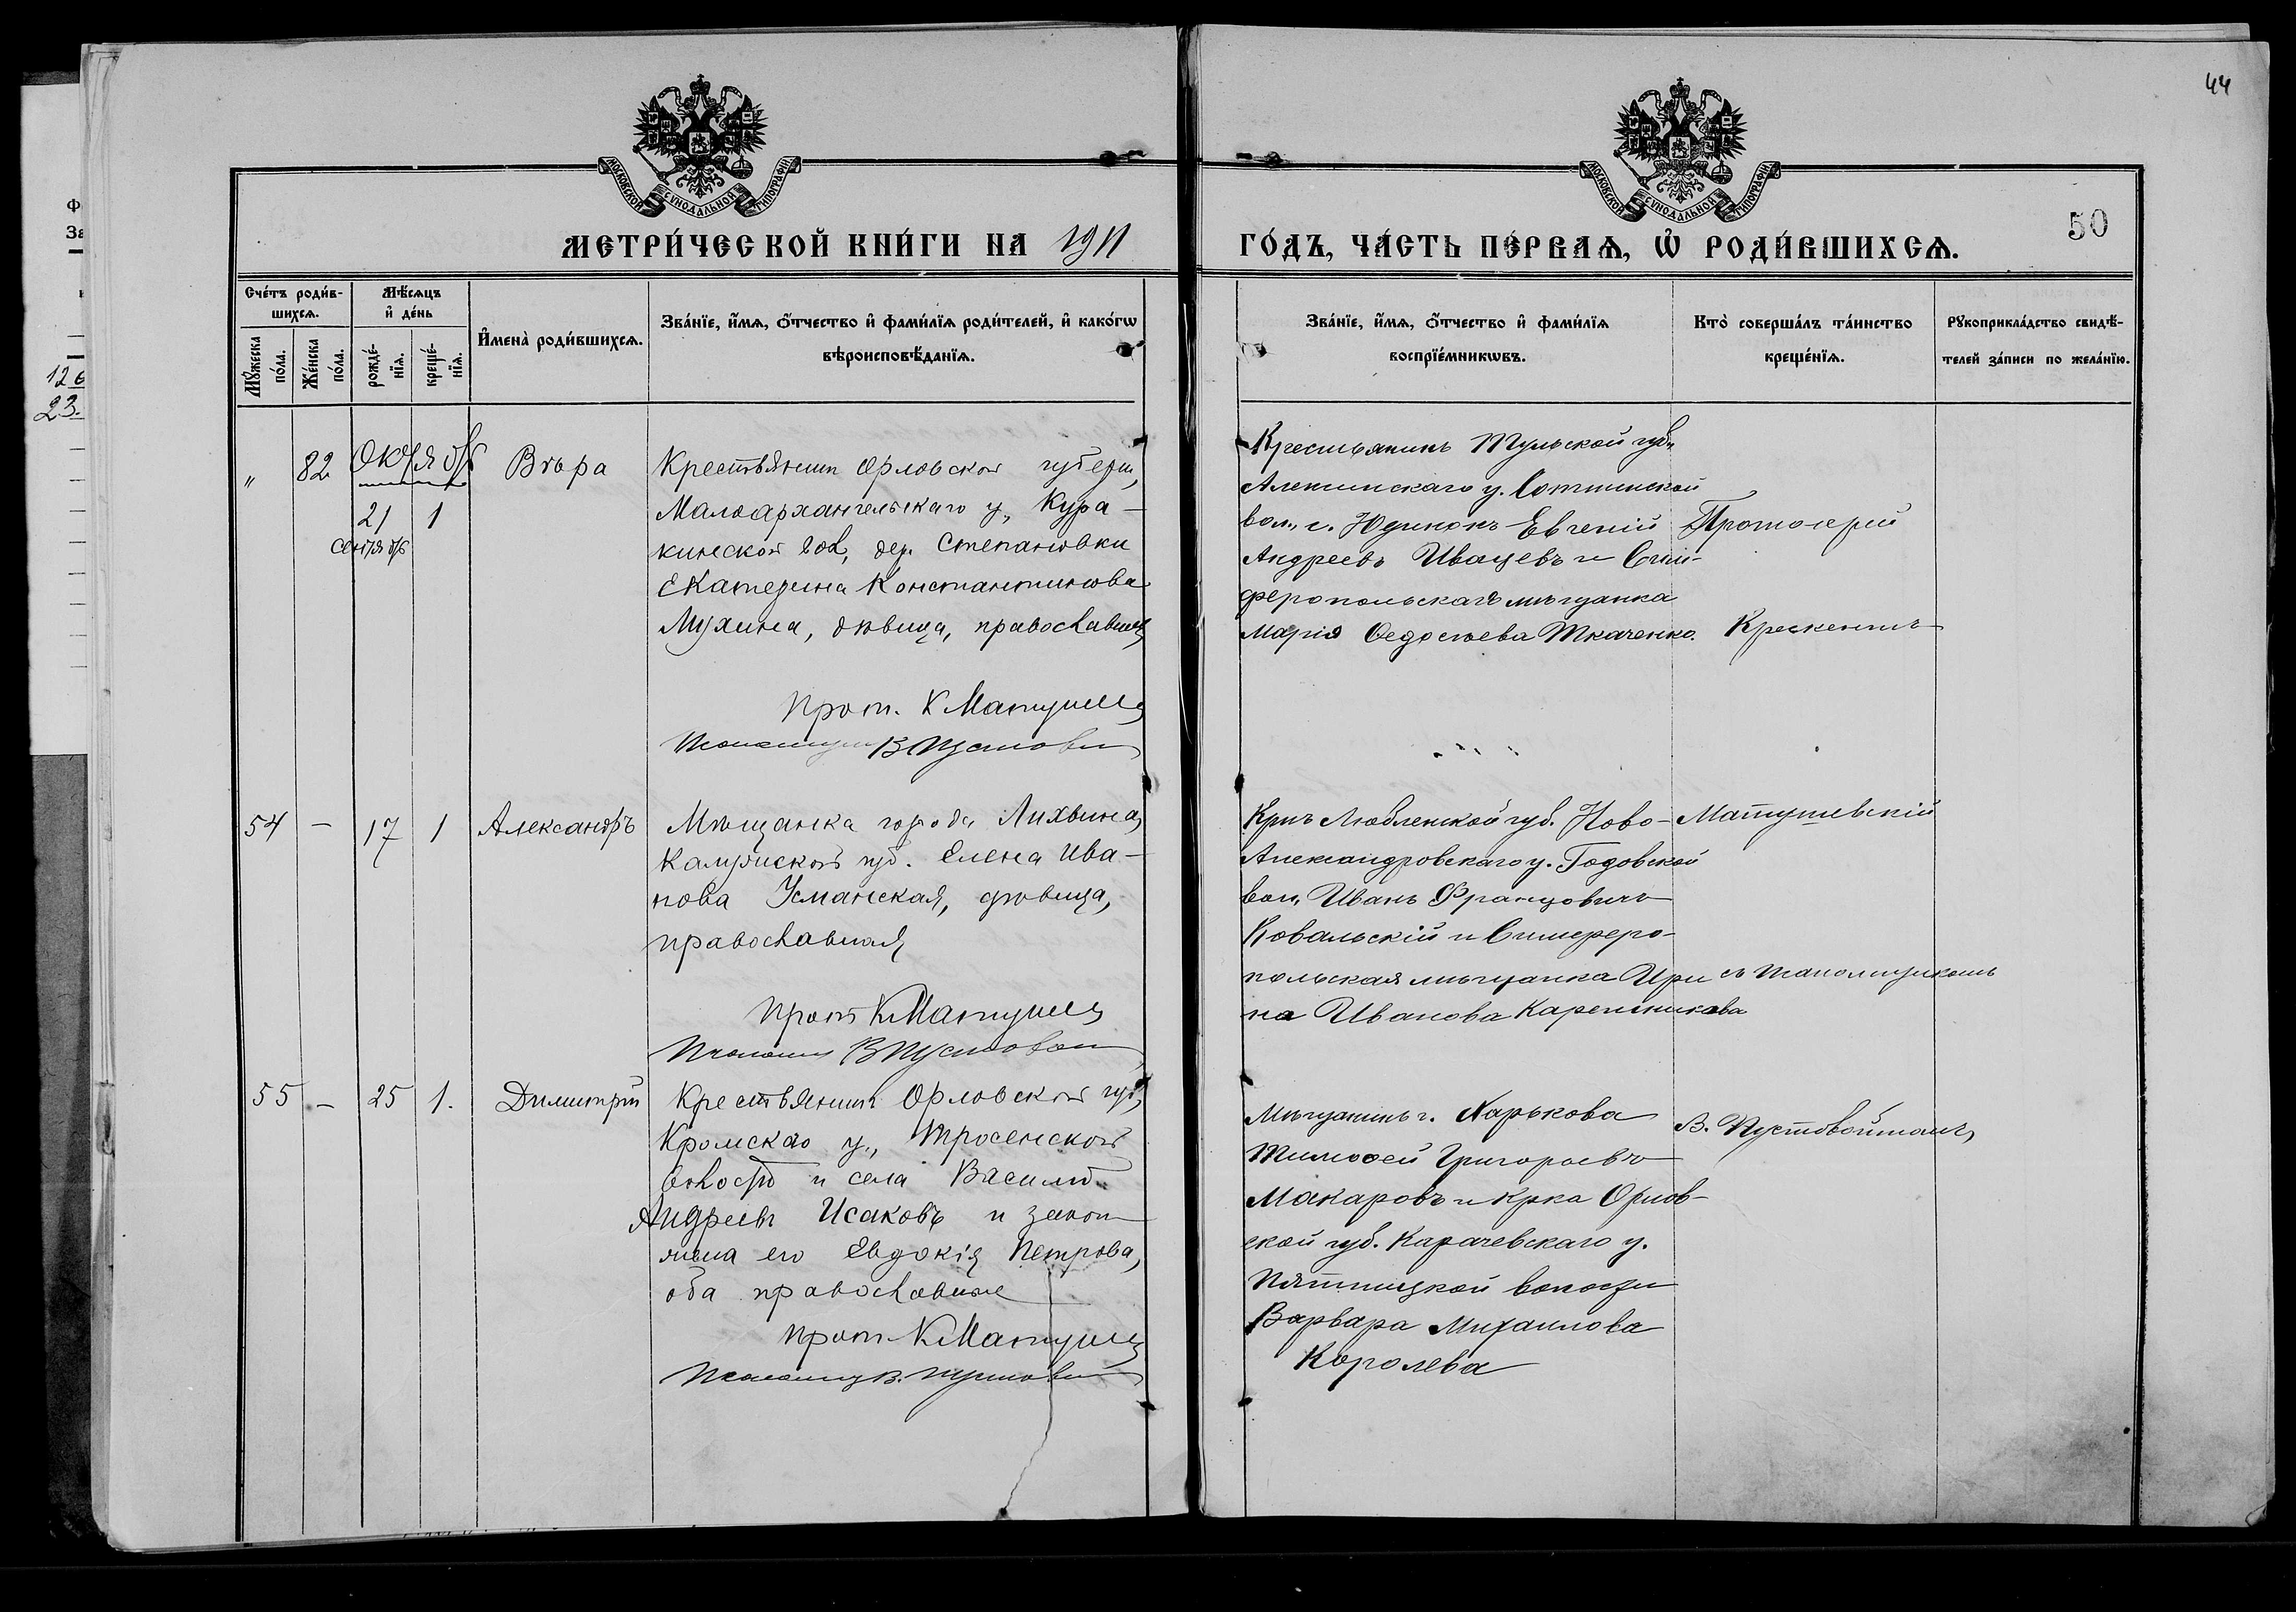 44
МОСКОВСКОЙ СѴНОДАЛЬНОЙ ТИПОГРАФІИ
МОСКОВСКОЙ СѴНОДАЛЬНОЙ ТИПОГРАФІИ
50
МЕТРИ́ЧЕСКОЙ КНИ́ГИ НА 1911
ГО́ДЪ, ЧА́СТЬ ПЕ́РВАѦ, Ѽ РОДИ́ВШИХСѦ.
Сче́тъ роди́в-
шихсѧ.
Мѣ́сѧцъ
и҆ де́нь
Мꙋ́жеска
по́ла.
Же́нска
по́ла.
рожде́-
нїѧ.
креще́-
нїѧ.
И҆мена̀ роди́вшихсѧ.
Зва́нїе, и҆́мѧ, о҆́тчество и҆ фами́лїѧ роди́телей, и҆ како́гѡ
вѣроисповѣ́данїѧ.
Зва́нїе, и҆́мѧ, о҆́тчество и҆ фами́лїѧ
воспрїе́мникѡвъ.
Кто̀ соверша́лъ та́инство
креще́нїѧ.
Рꙋкоприкла́дство свидѣ́-
телей за́писи по жела́нїю.
126
23.
" 82 Октября
21 1
Сентября
Вѣра
Крестьянин Орловской губерн,
Малоархангельскаго у., Кура-
кинской вол, дер. Степановки
Екатерина Константинова
Мухина, дѣвица, православная
Прот. К Матушев
Псаломщ В Пустовойт
Крестьянинъ Тульской губ.
Алексинскаго у. Сотинской
вол. с. Юдинокъ Евгеній
Андреевъ Иванцевъ и Сим-
феропольская мѣщанка
Марія Ѳедосѣева Ткаченко.
Протоіерей
Крескентъ
54 — 17 1 Александръ
Мѣщанка города Лихвина,
Калужской губ. Елена Ива-
нова Усманская, дѣвица,
православная
Прот К Матушев
Псаломщ В Пустовойт
Крнъ Люблинской губ. Ново-
Александровскаго у. Годовской
вол, Иванъ Францовичъ
Ковальскій и Симферо-
польская мѣщанка Ири
на Иванова Каретникова
Матушевскій
съ псаломщикомъ
55 — 25 1. Димитрій
Крестьянинъ Орловской губ,
Кромскаго у., Тросенской
волости и села Василій
Андреевъ Исаковъ и закон
жена его Евдокія Петрова,
оба православные
Прот К Матушев
Псаломщ В. Пустовойт
Мѣщанинъ г. Харькова
Тимоѳей Григорьевъ
Макаровъ и крка Орлов-
ской губ. Карачевскаго у.
Пятницкой волости
Варвара Михаилова
Королева
В. Пустовойтомъ,